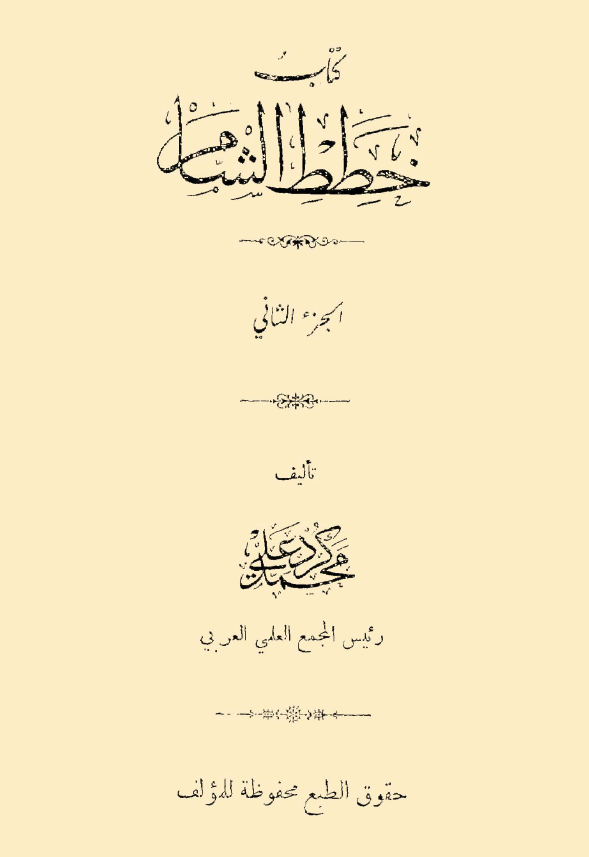 كتاب
خطط الشام
الجزء الثاني
تأليف
محمد كرد علي
رئيس المجمع العلمي العربي
حقوق الطبع محفوظة للمؤلف